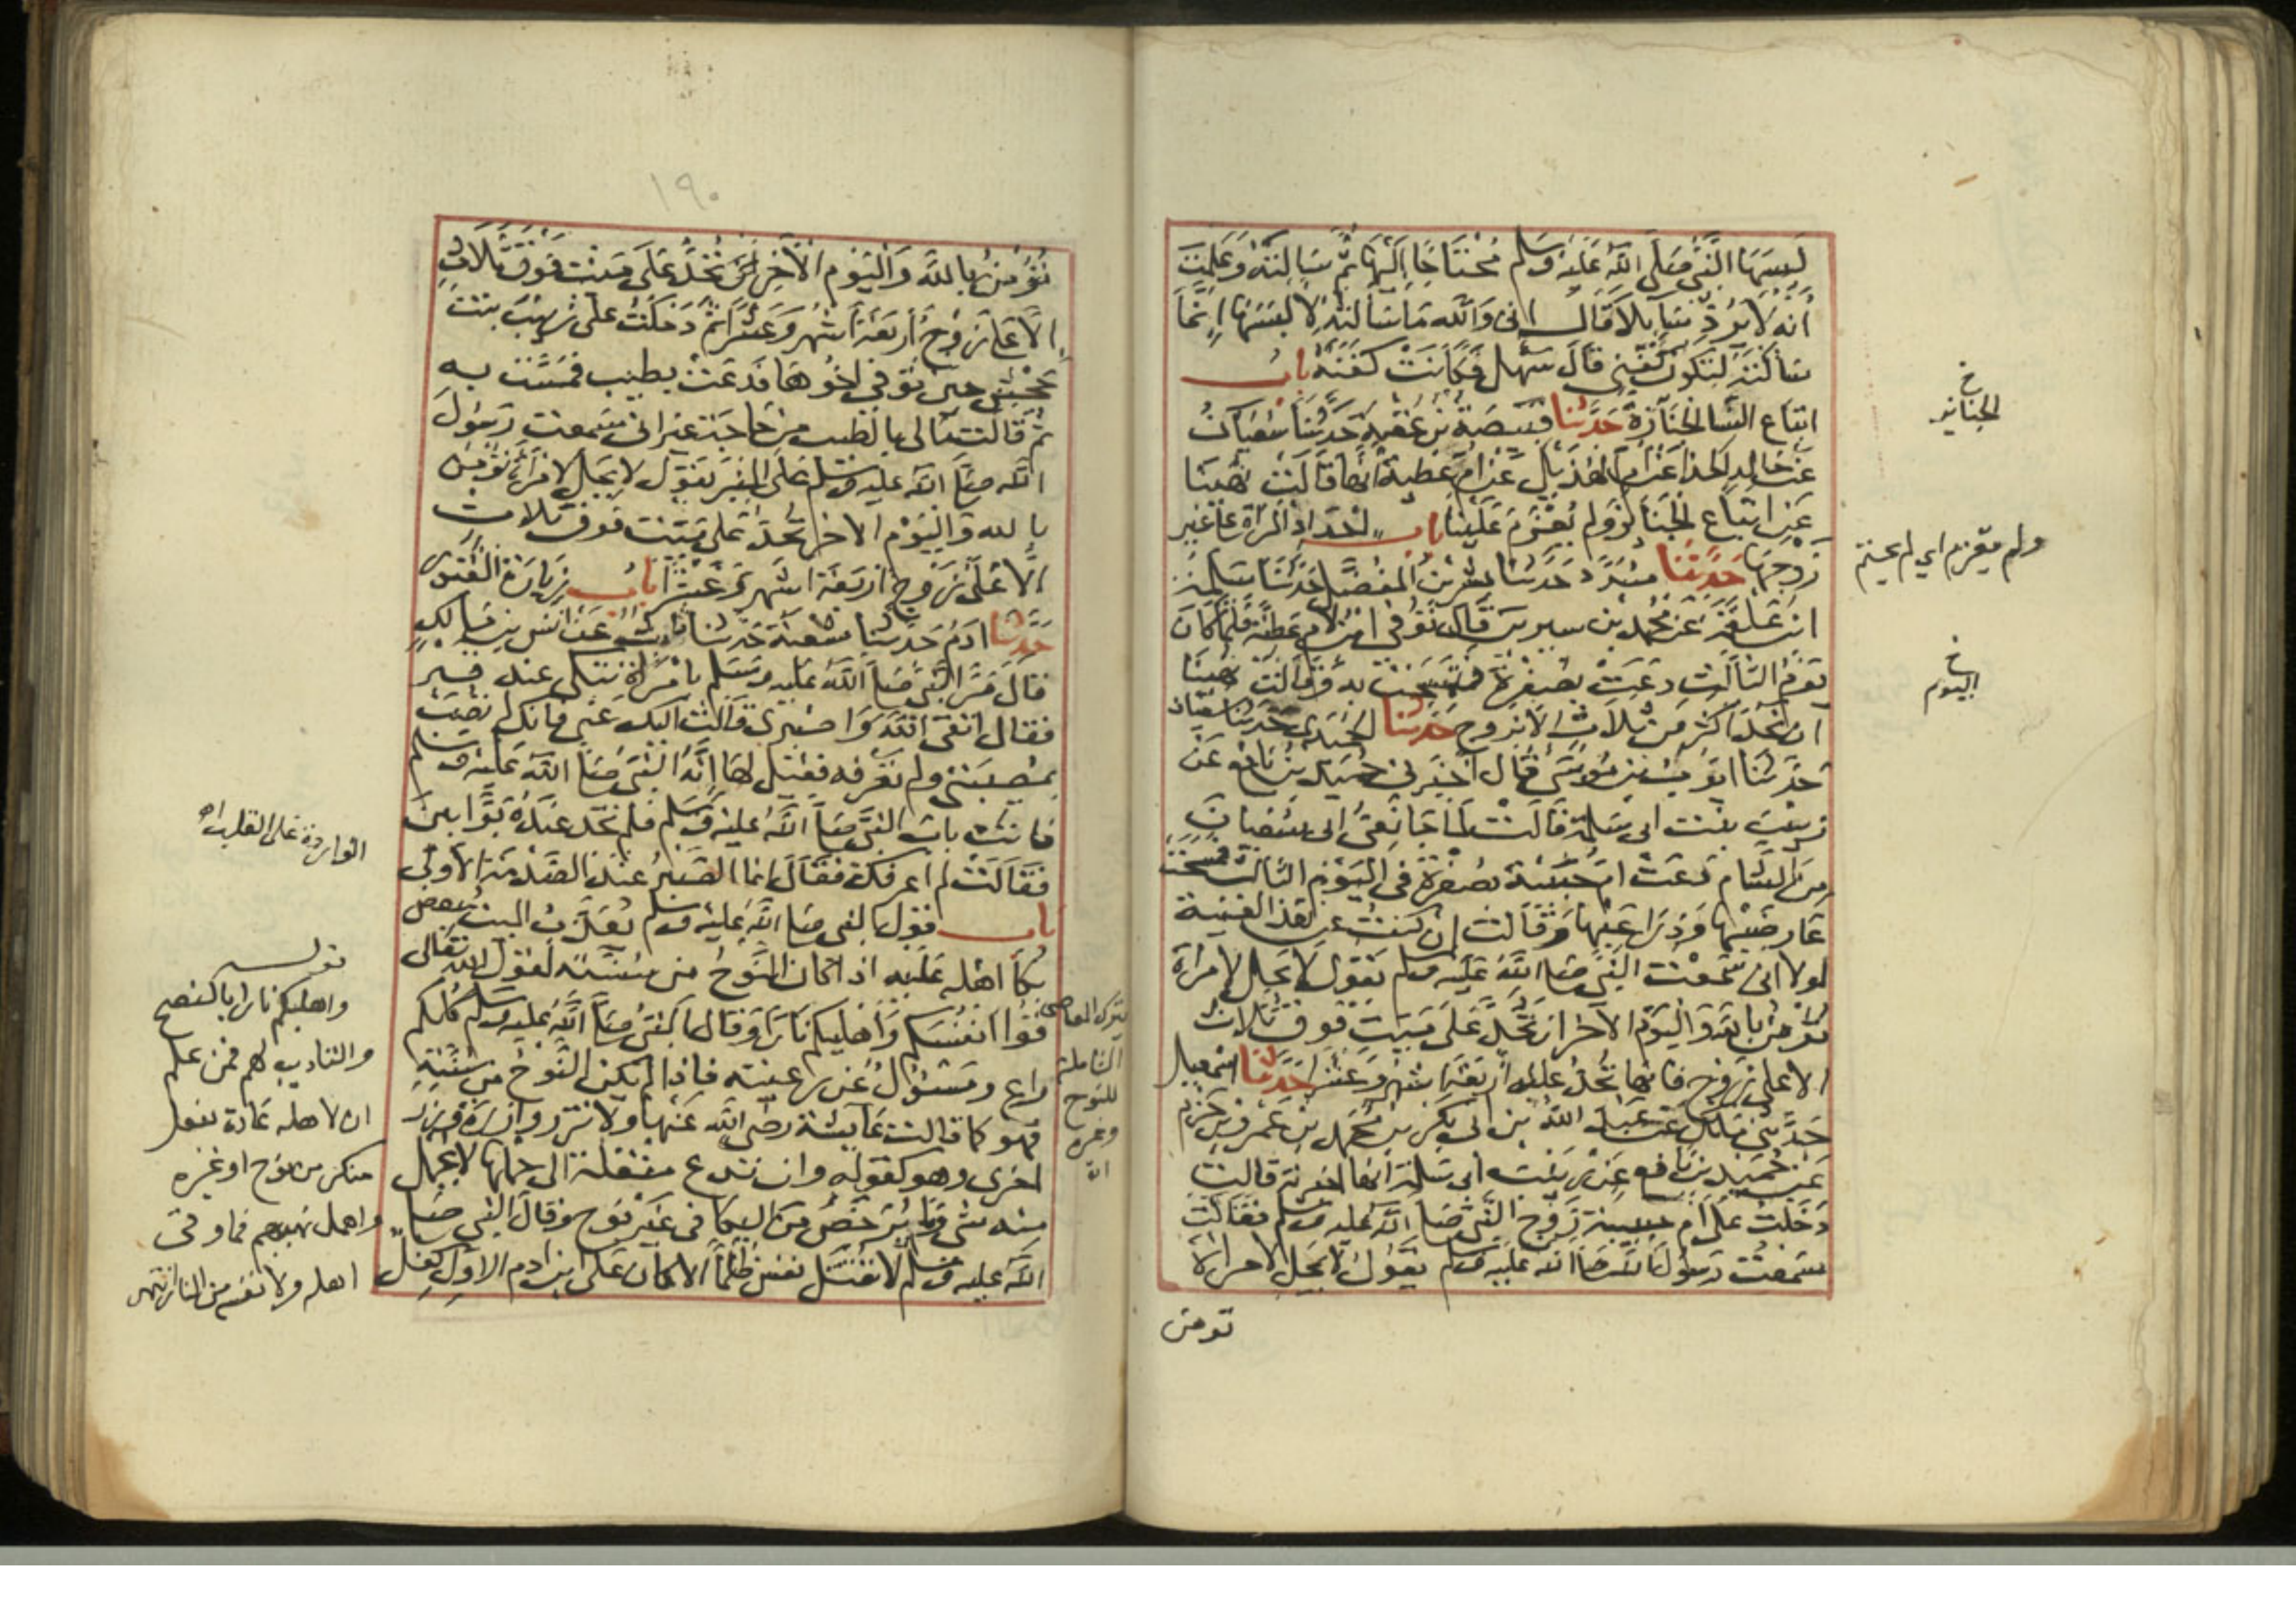 لَبِسَهَا النَّبِيُّ صَلَّى اللَّهُ عَلَيْهِ وَسَلَّم مُحْتَاجًا إِلَيْهَا ثُمَّ سَالْتَهُ وَعَلِمْتَ
أَنَّهُ لَا يَرُدُّ سَايلاً قَالَ انى وَاللَّه مَا سَالْتُهُ لِالبسَهَا إِنَّمَا
سَالْتُهُ لِتَكُونَ كَفَنِي قَالَ سَهْل فَكَانَتْ كَفَنَهُ بَابُ
اتباع النسا الجنَازة حَدَّثَنَا قَبِيصَةُ بْنُ عُقْبَةَ حَدَّثَنَا سُفيَانُ
عَنْ خالد الحذا عَنْ ام الهُذَيل عَنْ امّ عَطِيةَ انها قَالَتْ نُهِينَا
عَن اتباع الجنَايز وَلم يُعْزَمْ عَلَيْنَا باب احْدَادُ المرْأة على غير
زَوْجِهَا حَدَّثَنَا مسَدَّد حَدَّثنا بشر بن المفضَّل حَدَّثنَا سَلمَة
ابنُ عَلْقَمَة عَن محمد بن سيرين قَالَ تُوُفِّي ابن لام عَطيَّة فلمَّا كَانَ
يَوْمُ الثالث دَعَتْ بصُفرَة فتَمَسَّحَت به وَقَالَت نُهينَا
ان نُحِدَّ اكْثر مِنْ ثلَاث الا بزوج حَدَّثَنَا الحُمَيدِى حَدَّثنَا سُفيان
حَدَّثنَا ايوب بن مُوسَى قَالَ اخبَرني حُمَيد بْن نافع عَن
زينب بنت ابى سَلمة قَالَت لَما جَا نَعْىُ ابى سُفيان
مِنَ الشام دَعَتْ ام حَبيبَة بصُفرَة في اليَوْم الثالث فمسَحَت
عَارضَيْهَا وَذِرَاعَيْهَا وَقَالَت ان كُنْتُ عن هَذَا لغنية
لولا انى سَمعْت النَّبيَّ صَلى اللهُ عَليه وسلم يَقُولُ لَا يَحِل لامرَأة
تُؤمِنُ باللهِ وَاليَوْم الآخِر ان تُحدَّ عَلى مَيت فوق ثَلاث
الا على زَوْج فانها تُحِدُّ عليه أرْبَعَة اشْهُر وَعَشْرًا حَدَّثَنَا اسْمعيل
حَدَّثَني مَلك عَنْ عَبْد اللهِ بن ابى بكر بن مُحَمد بن عَمْرو بن حَزم
عَن حُمَيد بن نَافع عَن زَيْنَب بنت ابى سَلمة أنها اخبرته قالت
دَخَلتُ عَلَى أم حَبيبة زَوْج النَّبيِّ صَلى اللهُ عَليه وسلم فقَالَتْ
سَمعْتُ رَسُولَ اللَّه صَلى الله عَليه وسلم يَقُولُ لَا يَحل لامراة
تومن
خ
الجنايز
ولم يعزم اي لم يحتم
خ
اليوم
١٩٠
تُؤمِنُ بِاللَّهِ وَاليَوْم الآخِر تُحِدُّ عَلَى مَيّتٍ فَوْق ثَلَاثٍ
الَّا عَلَى زَوْجٍ أرْبَعَةَ أَشْهُر وَعَشْرًا ثُمَّ دَخَلْتُ عَلى زَيْنَبَ بِنْتِ
جَحْشٍ حِين تُوُفى اخُوهَا فَدَعَتْ بطِيب فمَسَّت به
ثم قَالَت مَا لى بالطيب من حَاجَة غيْرَ انى سَمعت رَسُولَ
الله صَلى الله عَليه وسَلم عَلى المِنْبَر يَقُول لا يَحِل لامْرَأة تؤمن
بالله وَاليَوْم الاخر تُحدّ عَلى مَيّت فوق ثلاث
الَّا عَلَى زَوْج أرْبَعَة اشْهُر وَعَشْرًا بابُ زيَارَة القُبُور
حَدَّثَنَا ادَمُ حَدَّثنَا شُعْبَة حَدَّثنَا ثابت عَن انس بن مَالِكٍ
قالَ مَرَّ النَّبيُّ صَلى اللَّهُ عَليه وَسَلم بامْرَأة تبكى عند قبر
فقال اتقى الله وَاصْبِرى قَالَت اليك عَنى فانك لم تُصَبْ
بمُصِيبَتي ولم تعرِفه فقيل لهَا إنّهُ النَّبيُّ صَلى اللهُ عَليه وسلم
فاتت باب النبى صَلى اللهُ عَليه وسلم فلم تجد عندَهُ بَوَّابينَ
فقَالَت لم اعرفك فقَالَ انما الصَّبْرُ عند الصَّدمَة الأولى
باب قول النبى صَلى الله عَليه وسلم يُعَذَّب الميت ببَعض
بُكَا اهْله عَليه اذا كان النَّوْحُ من سُنَّته لقَول الله تعالى
قُوا أنفُسَكم وَأهْليكم نَارًا وَقَال النبى صَلى اللَّه عَليه وسلم كُلكم
راعٍ ومَسْؤُلٌ عَن رَعيته فاذا لم يكن النَّوْحُ مِن سُنَّتِهِ
فهو كما قالت عَايشة رضى الله عَنْهَا ولا تزر وازرة وزر
اخرى وهو كقوله وان تدع مثقلة الى حملها لا يحمل
منه شى وَمَا يُرَخَّصُ مِنَ البكا فى غَيْر نَوْح وَقَالَ النَّبي صَلى
اللَّه عَليه وسلم لا تُقْتَل نفس ظلماً الا كان عَلى ابن ادم الاوّل كِفل
الواردة على القلب اه
قولــه
واهليكم نارا بالنصح
والتاديب لهم فمن علم
ان لاهله عادة بفعل
منكر من نوح او غيره
واهمل نهيهم فما وقى
اهله ولا نفسه من النار انتهى
بترك المعاصى
الشاملة
للنوح
وغيره
اه